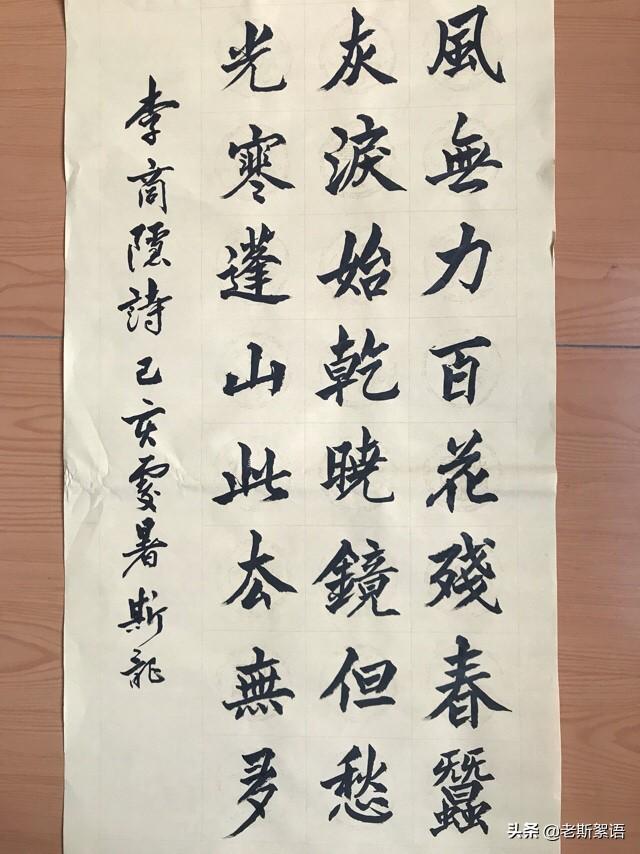 風無力百花殘春蠶
灰淚始乾曉鏡但愁
光寒蓬山此去無多
李商隱詩己亥處暑斯龍
头条 @老斯絮语